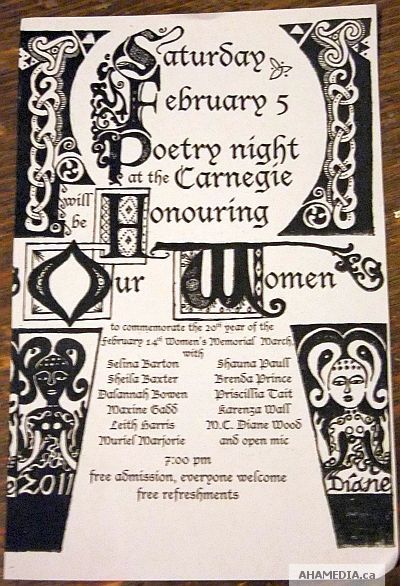 Saturday
February 5
Poetry night
at the Carnegie
will be
Honouring
Our Women
to commemorate the 20th year of the
February 14th Women's Memorial March,
with
Selina Barton Shauna Paull
Sheila Baxter Brenda Prince
Dalannah Bowen Priscillia Tait
Maxine Gadd Karenza Wall
Leith Harris M.C. Diane Wood
Muriel Marjorie and open mic
7:00 pm
free admission, everyone welcome
free refreshments
2011
Diane
AHAMEDIA.ca